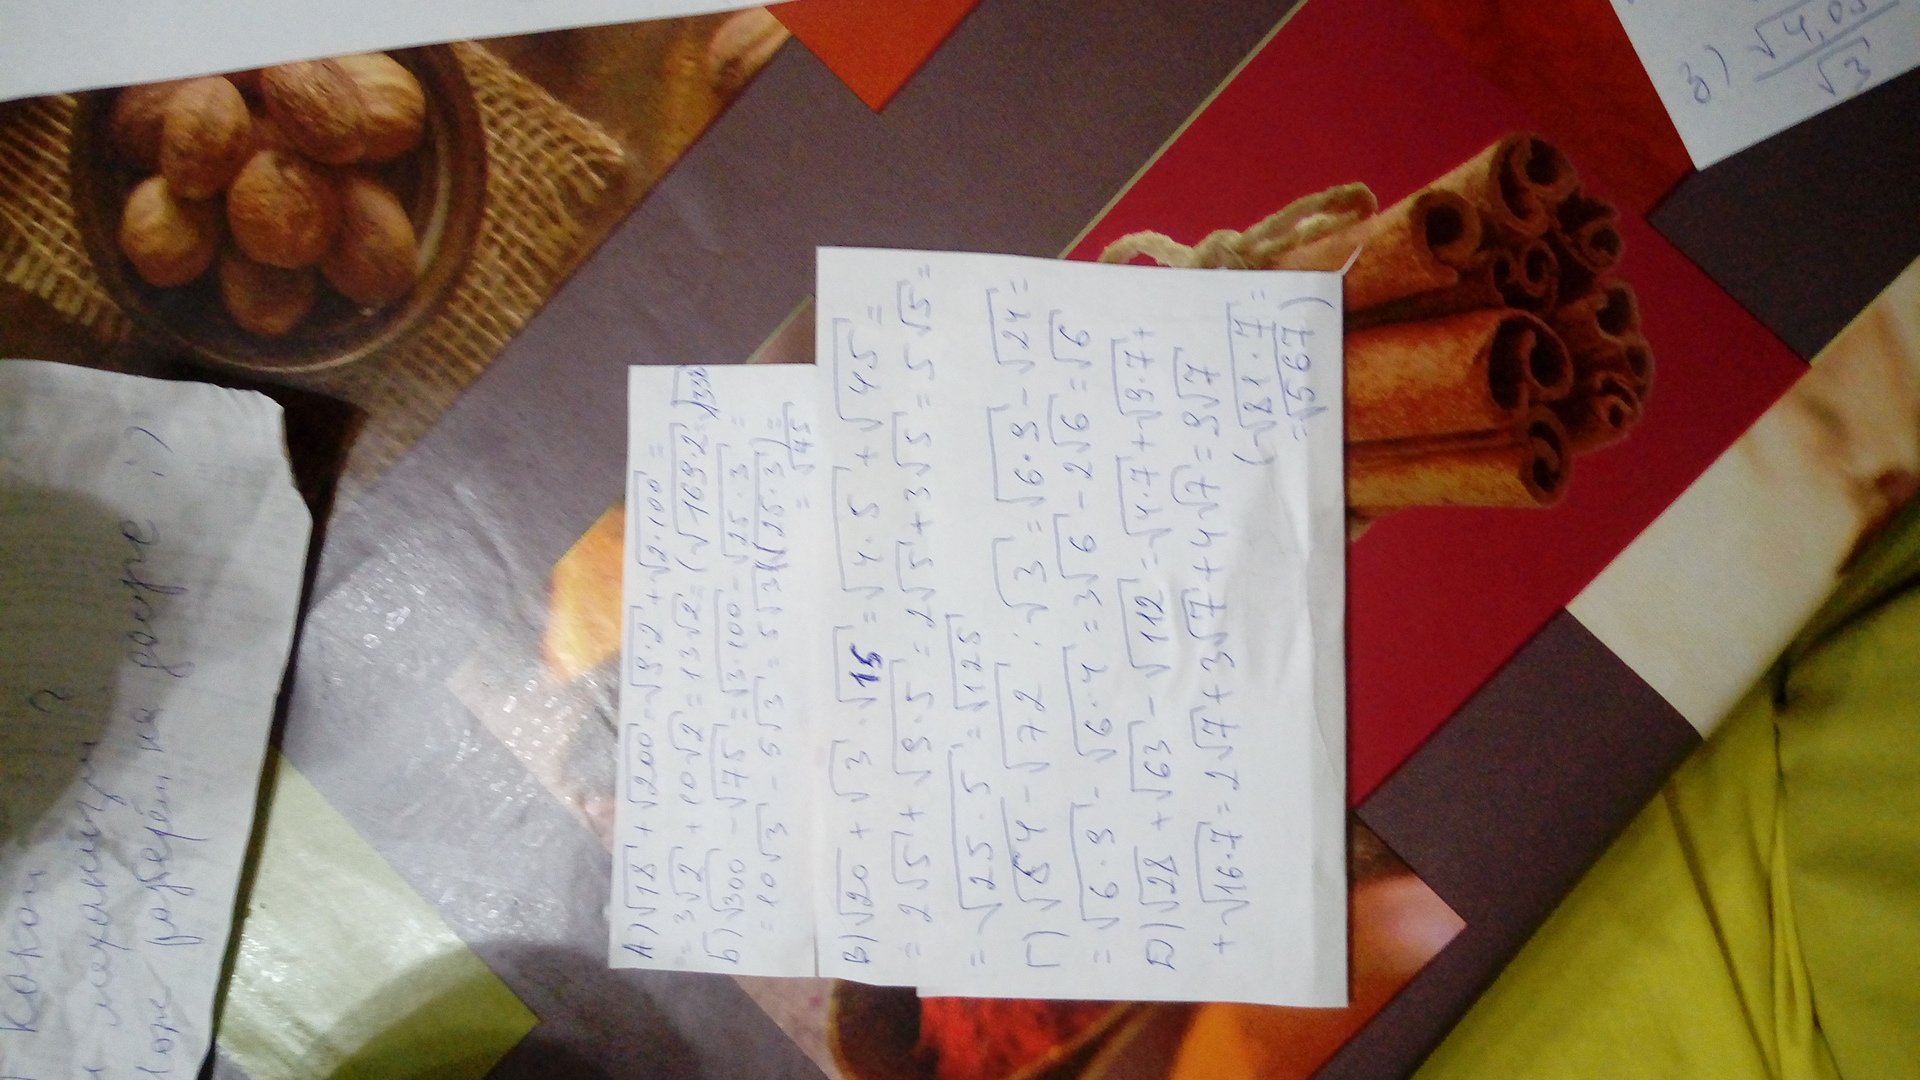 А) √18 + √200 = √9·2 + √2·100 =
= 3√2 + 10√2 = 13√2 = (√169·2 = √338
Б) √300 - √75 = √3·100 - √25·3 =
= 10√3 - 5√3 = 5√3 (√25·3) =
= √75
В) √20 + √3 · √15 = √4·5 + √45 =
= 2√5 + √9·5 = 2√5 + 3√5 = 5√5 =
= √25·5 = √125
Г) √54 - √72 : √3 = √6·9 - √24 =
= √6·9 - √6·4 = 3√6 - 2√6 = √6
Д) √28 + √63 - √112 = √4·7 + √9·7 +
+ √16·7 = 2√7 + 3√7 + 4√7 = 9√7
(√81·7 =
= √567)
какой
?
на доске :)
3) √4,0
√3